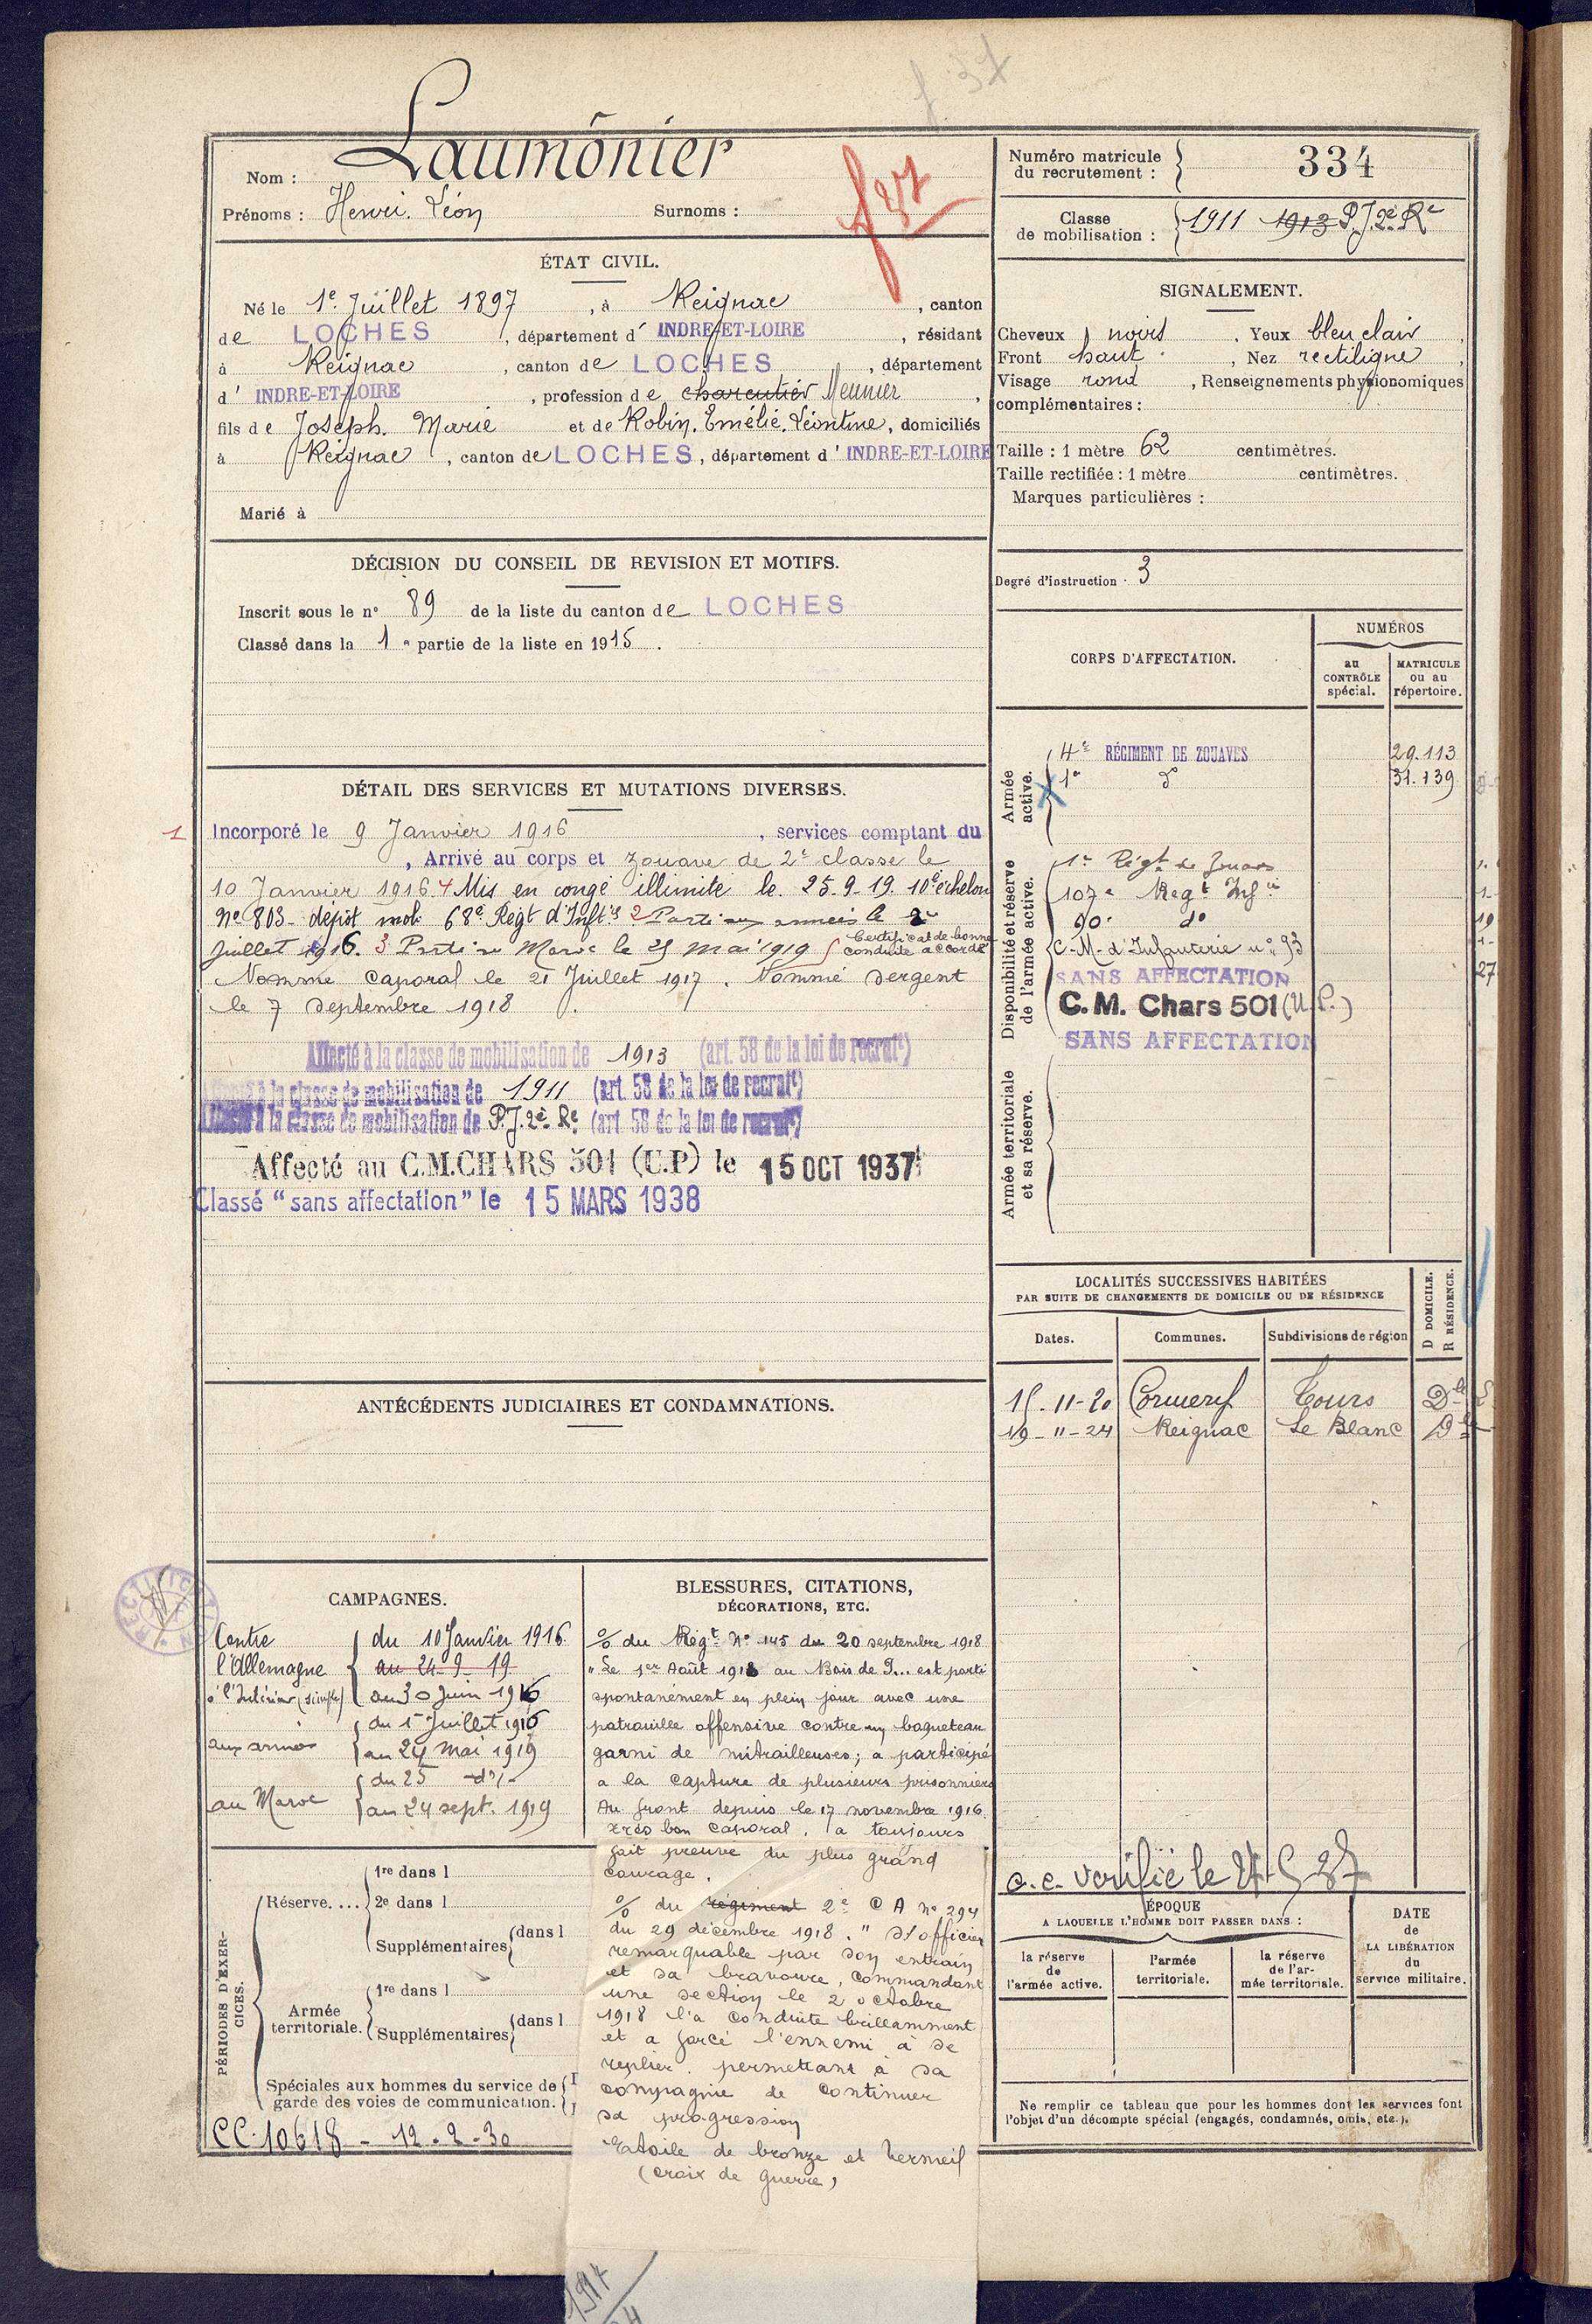 f 37
Nom : Laumônier
Prénoms : Henri. Léon Surnoms :
f 37
ÉTAT CIVIL.
Né le 1e Juillet 1897, à Reignac, canton
de LOCHES, département d' INDRE-ET-LOIRE, résidant
à Reignac, canton de LOCHES, département
d' INDRE-ET-LOIRE, profession de charcutier Meunier,
fils de Joseph. Marie et de Robin. Emélie. Léontine, domiciliés
à Reignac, canton de LOCHES, département d' INDRE-ET-LOIRE
Marié à
DÉCISION DU CONSEIL DE REVISION ET MOTIFS.
Inscrit sous le n° 89 de la liste du canton de LOCHES
Classé dans la 1e partie de la liste en 1915.
DÉTAIL DES SERVICES ET MUTATIONS DIVERSES.
1 Incorporé le 9 Janvier 1916, services comptant du
, Arrivé au corps et zouave de 2e classe le
10 Janvier 1916. 4 Mis en congé illimité le 25-9-19 10e échelon
No 803- dépôt mob. 68e Regt d'Inftie 2 Parti aux armées le 2
Juillet 1916. 3 Parti au Maroc le 25 mai 1919 5 Certificat de bonne
conduite accordé
Nommé Caporal le 21 Juillet 1917. Nommé Sergent
le 7 Septembre 1918
Affecté à la classe de mobilisation de 1913 (art. 58 de la loi de recrutt)
Affecté à la classe de mobilisation de 1911 (art. 58 de la loi de recrutt)
Affecté à la classe de mobilisation de P.J. 2e Re (art 58 de la loi de recrutt)
Affecté au C.M.CHARS 501 (U.P) le 15 OCT 1937
Classé "sans affectation" le 15 MARS 1938
ANTÉCÉDENTS JUDICIAIRES ET CONDAMNATIONS.
CAMPAGNES.
Contre du 10 Janvier 1916
l'Allemagne au 24-9-19
à l'Intérieur (simple) au 30 Juin 1916
du 1er Juillet 1916
aux armées au 24 mai 1919
du 25 -do-
au Maroc au 24 sept. 1919
BLESSURES, CITATIONS,
DÉCORATIONS, ETC.
% du Régt No 145 du 20 septembre 1918
"Le 1er Août 1918 au Bois de D... est parti
spontanément en plein jour avec une
patrouille offensive contre un boqueteau
garni de mitrailleuses; a participé
a la capture de plusieurs prisonniers
Au front depuis le 17 novembre 1916.
très bon caporal, a toujours
fait preuve du plus grand
courage.
% du régiment 2e C A No 294
du 29 décembre 1918. "St officier
remarquable par son entrain
et sa bravoure, commandant
une section le 2 octobre
1918 l'a conduite brillamment
et a forcé l'ennemi à se
replier. permettant à sa
compagnie de continuer
sa progression
Etoile de bronze et Vermeil
(croix de guerre)
PÉRIODES D'EXERCICES.
Réserve.... 1re dans l
2e dans l
Supplémentaires dans l
Armée territoriale. 1re dans l
Supplémentaires dans l
Spéciales aux hommes du service de
garde des voies de communication.
CC. 10618 - 12-2-30
Numéro matricule
du recrutement : 334
Classe
de mobilisation : 1911 1913 P.J. 2e Re
SIGNALEMENT.
Cheveux noirs. Yeux bleu clair,
Front haut, Nez rectiligne,
Visage rond, Renseignements physionomiques
complémentaires :
Taille : 1 mètre 62 centimètres.
Taille rectifiée : 1 mètre centimètres.
Marques particulières :
Degré d'instruction : 3
CORPS D'AFFECTATION.
NUMÉROS
au CONTRÔLE spécial.
MATRICULE ou au répertoire.
Armée active.
4e RÉGIMENT DE ZOUAVES 29.113
1er do 31.139
Disponibilité et réserve de l'armée active.
1er Régt de Zouaves
107e Regt Infie
90e do
C-M-d'Infanterie no 93
SANS AFFECTATION
C.M. Chars 501 (U.P.)
SANS AFFECTATION
Armée territoriale et sa réserve.
LOCALITÉS SUCCESSIVES HABITÉES
PAR SUITE DE CHANGEMENTS DE DOMICILE OU DE RÉSIDENCE
Dates. Communes. Subdivisions de région D DOMICILE. R RÉSIDENCE.
15-11-20 Cormery Tours Dle
19-11-24 Reignac Le Blanc Dle
c.c. vérifié le
ÉPOQUE
A LAQUELLE L'HOMME DOIT PASSER DANS :
la réserve de l'armée active.
l'armée territoriale.
la réserve de l'armée territoriale.
DATE de LA LIBÉRATION du service militaire.
Ne remplir ce tableau que pour les hommes dont les services font
l'objet d'un décompte spécial (engagés, condamnés, omis, etc.).